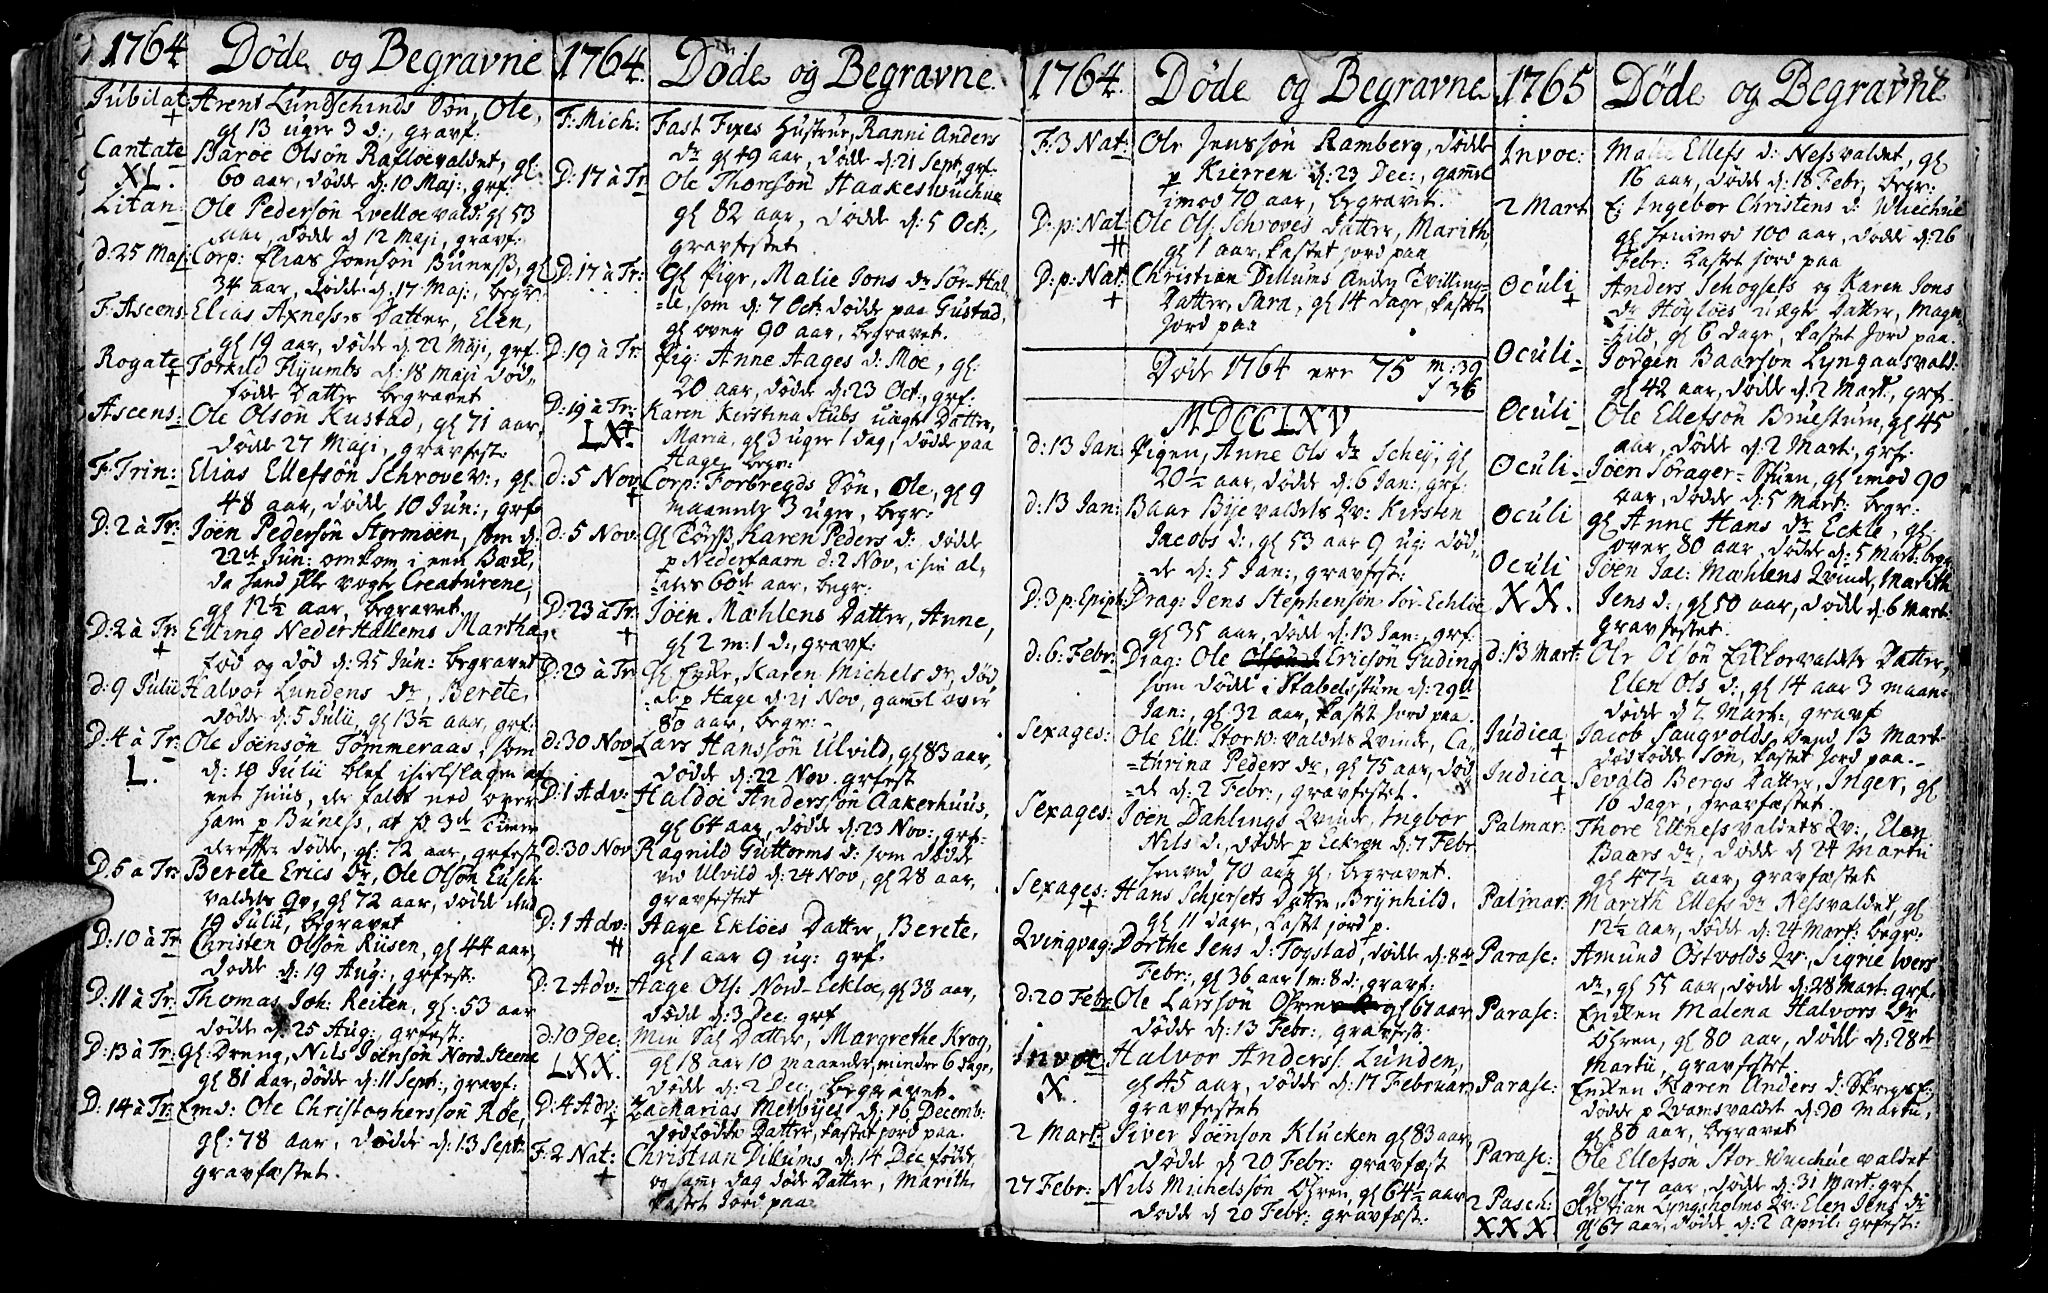 1764 Døde og Begravne
Jubilat: Arent Lundschinds Søn, Ole,
+ gl 13 uger 3 d:, gravf:
Cantate Baroe Olsøn Rafloevaldet, gl:
XL. 60 aar, døde d: 10 Maj:, grf:
Litan: Ole Pedersøn Qvelloevald: gl 53
aar, døde d 12 Maji, gravf:
d: 25 Maj: Corp: Elias Joensøn Buness, gl
34 aar, døde d: 17 Maj:, begr:
F: Ascens: Elias Axnesses Datter, Elen,
gl 19 aar, døde d: 22 Maji, grf:
Rogate Torkild Flyumbs d: 18 Maji død-
+ fødde Datter begravet
Ascens: Ole Olsøn Kustad, gl 71 aar,
døde 27 Maji, gravfest:
F: Trin: Elias Ellefsøn Schrovev:, gl:
48 aar, døde 10 Jun:, grf:
D: 2 à Tr: Joen Pedersøn Stormoen, som d:
22de Jun: omkom i een Bæk,
da hand ville vogte Creaturene,
gl 12½ aar, begravet
D: 2 à Tr: Elling Neder Halkems Martha,
+ fød og død d: 25 Jun: begravet
d: 9 Julii Halvor Lundens dr, Berete,
døde d: 5 Julii, gl 13½ aar, grf:
D: 4 à Tr: Ole Joensøn Tømmeraas, som
L. d: 10 Julii blef ihielslagen af
eet huus, der faldt ned over
ham p Buness, at hd 3de Timer
derefter døde, gl: 72 aar, grfest
D: 5 à Tr: Berete Erics dr, Ole Olsøn Eusch
valdets Qv, gl 72 aar, døde
19 Julii, begravet
D: 10 à Tr Christen Olsøn Riisen, gl 44 aar,
døde d: 19 Aug:, grfest:
D: 11 à Tr: Thomas Joh: Reiten, gl: 53 aar
døde d: 25 Aug:, grfest:
D: 13 à Tr: Gl: Dreng, Nils Joensøn Nord-Steene
gl 81 aar, døde d: 11 Sept:, gravf:
D: 14 à Tr: Em d: Ole Christophersøn Røe,
gl: 78 aar, døde d: 13 Sept:
gravfæstet.
1764 Døde og Begravne
F: Mich: Fast Fixes Hustrue, Ranni Anders
dr gl 49 aar, døde d: 21 Sept, grf:
D: 17 à Tr Ole Thoresøn Haakeswuchue
gl 82 aar, døde d: 5 Oct:,
gravfestet
D: 17 à Tr: Gl Pige, Malie Jons dr Sør-Hal-
=le, som d: 7 Oct: døde paa Gustad,
gl over 90 aar, begravet.
D: 19 à Tr: Pig: Anne Aages d: Moe, gl:
20 aar, døde d: 23 Oct:, grf:
D: 19 à Tr: Karen Kirstina Stubs uægte Datter,
LX. + Maria, gl 3 uger 1 dag, døde paa
Hage begr:
d: 5 Nov Corp: Forbregds Søn, Ole, gl 9
+ maaneder 3 uger, begr:
d: 5 Nov: Gl Karen Peders d: døde
p Nederfaaren d: 2 Nov, i sin al-
=ders 60de aar, begr:
D: 23 à Tr: Joen Mæhlens Datter, Anne,
+ gl 2 m: 1 d:, gravf:
D: 23 à Tr Gl Encke, Karen Michels dr, død
p Hage d: 21 Nov, gaml over
80 aar, begr:
d: 30 Nov Lars Hanssøn Ulvild, gl 83 aar,
døde d: 22 Nov. grfest
D: 1 Adv: Haldoe Anderssøn Aakerhuus,
gl 64 aar, døde d: 23 Nov:, grf:
d: 30 Nov Ragnild Guttorms d: som døde
ved Ulvild d: 24 Nov, gl 28 aar,
gravfestet
D: 1 Adv: Aage Ekloes Datter, Berete,
++ gl 1 aar 9 ug: grf:
D: 2 Adv: Aage Ols: Nord-Eckloe, gl 38 aar,
døde d: 3 Dec: grf
d: 10 Dec: Min Sal Datter, Margrethe Krog,
LXX. gl 18 aar 10 maaneder, minder 6 dage,
døde d: 2 Dec:, begravet.
D: 4 Adv: Zacharias Melbyes d: 16 Decemb:
+ dødfødde Datter, kastet jord paa.
F: 2 Nat: Christian Dillums d: 14 Dec fødde
+ og samme dag døde Datter, Marith,
kastet Jord paa
1764 Døde og Begravne
F: 3 Nat: Ole Jenssøn Ramberg, døde
p Kierren d: 23 Dec:, gamel
imod 70 aar, begravet.
D: p: Nat: Ole Ols: Schroves Datter, Marith,
++ gl 1 aar, kastet jord paa
D: p: Nat: Christian Dillums Anden Tvilling-
+ Datter, Sara, gl 14 dage, kastet
Jord paa
Døde 1764 ere 75 m: 39
f 36
MDCCLXV
d: 13 Jan: Pigen, Anne Ols dr Schej, gl
20½ aar, døde d: 6 Jan:, grf:
d: 13 Jan: Baar Byevaldets Qv: Kirsten
Jacobs d:, gl 53 aar 9 ug: død-
=de d: 5 Jan:, gravfest:
D: 3 p: Epiph: Drag: Jens Stephensøn Sør-Echloe
gl 35 aar, døde d: 13 Jan:, grf:
d: 6: Febr: Drag: Ole Ericsøn Guding
som døde i Stabelstuen d: 29d
Jan:, gl 32 aar, kastet Jord paa.
Sexages: Ole Ell: Storw:valdets Qvinde, Ca-
=thrina Peders dr, gl 75 aar, død
=de d: 2 Febr:, gravfestet.
Sexages: Joen Dahlings Qvinde, Ingbor
Nils d:, døde p Eckren d: 7 Febr
henved 70 aar gl: begravet.
Sexages: Hans Schjersets Datter, Brynhild,
+ gl 11 dage, kastet jord p.
Qvinqvag: Dorthe Jens d: Togstad, døde d: 8de
Febr:, gl 36 aar 1 m: 8 d:, gravf:
d: 20 Febr: Ole Larssøn Øhren gl 67 aar
døde d: 13 Febr:, gravfest:
Invoc Halvor Anderss: Lunden,
X. gl 45 aar, døde d: 17 Februar
gravfestet
2 Mart: Siver Joenson Klucken gl 83 aar,
døde d 20 Febr: gravfæst
27 Febr: Nils Michelssøn Øhren, gl 64½ aar
døde d 20 Febr: gravfæst:
1765 Døde og Begravne 304
Invoc: Malie Ellefs d: Nessvaldet, gl
16 aar, døde d: 18 Febr, begr:
2 Mart E: Ingebor Christens d: Wuchue
gl henimod 100 aar, døde d: 26
Febr: kastet jord paa
Oculi Anders Schogsets og Karen Jons
+ dr Høyloes uægte Datter, Magn-
=hild, gl 6 dage, kastet jord paa.
Oculi- Jørgen Baarsøn Lyngaasvald:
gl 42 aar, døde d: 2 Mart:, grf:
Oculi Ole Ellefsøn Bruestuen, gl 45
aar, døde d: 2 Mart:, grf:
Oculi- Joen Sørager-Stuen, gl imod 90
aar, døde d: 5 Mart: begr:
Oculi gl Anne Hans dr Eckle, gl:
over 80 aar, døde d: 5 Mart: begr
Oculi Joen Jac: Mæhlens Qvinde, Marith
XX. Jens d:, gl 50 aar, døde d: 6 Mart:
gravfestet.
d: 13 Mart: Ole Olsøn Eikloevaldets Datter,
Elen Ols d:, gl 14 aar 3 maan:
døde d 7 Mart:, gravf
Judica Jacob Saugvolds, d 13 Mart
+ dødfødde Søn, kastet jord paa.-
Judica Sevald Bergs Datter, Inger, gl
+ 10 dage, gravfæstet.
Palmar: Thore Ellnessvaldets Qv:, Elen
Baars dr, døde d 24 Martii
gl 47½ aar, gravfæstet
Palmar: Marith Ellefs dr Nessvaldet, gl
12½ aar, døde d: 24 Mart: begr:
Parasc: Amund Ostvolds Qv:, Sigrie Ivers
dr, gl 55 aar, døde d: 28 Mart: grf:
Parasc: Encken Malena Halvors dr
Øhren, gl 80 aar, døde d: 28de
Martii, gravfestet.
Parasc: Encken Karen Anders d:
døde p Qvamsvaldet d: 30 Martii,
gl 86 aar, begravet
Parasc: Ole Ellefsøn Stor Wuchue valdet
gl 77 aar, døde d: 31 Mart: grf
2 Pasch: Christian Lyngsholms Qv: Elen Jens dr
XXX. gl 67 aar, døde d: 2 April: grfest: